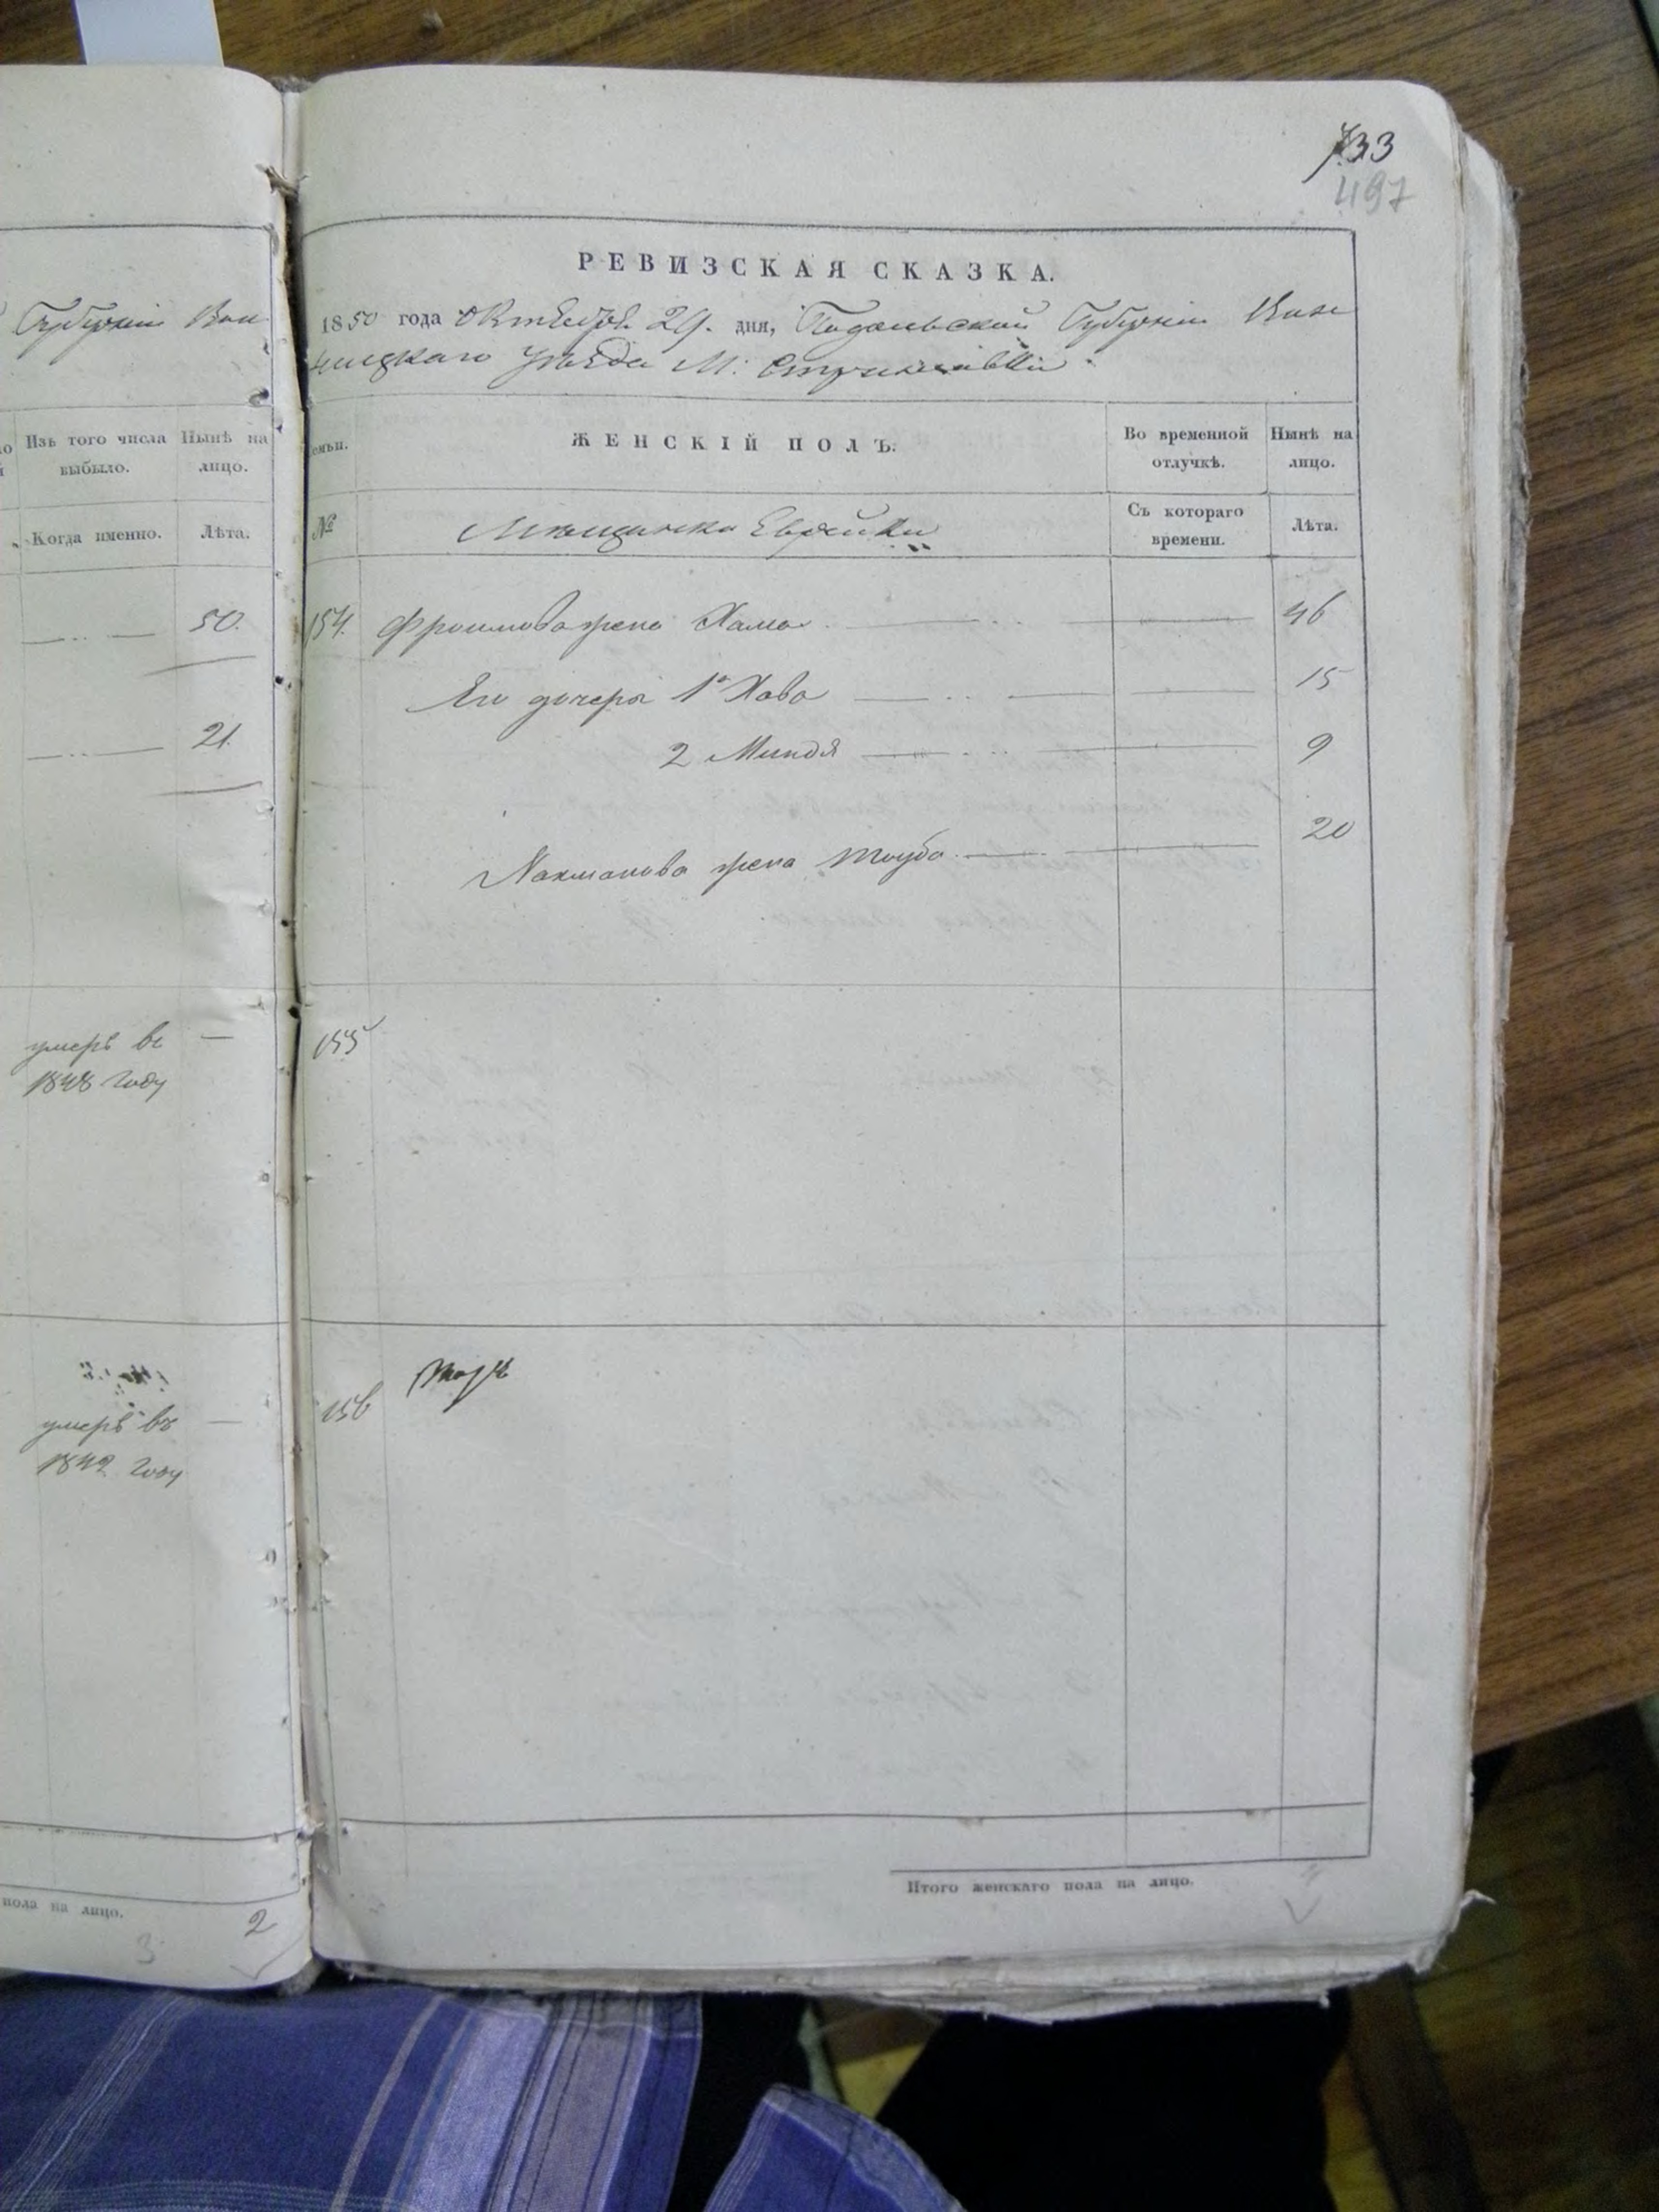 Губернiи Вин
Изъ того числа выбыло.
Нынѣ на лицо.
Когда именно.
Лѣта.
50.
21.
умеръ въ
1848 году
—
умеръ въ
1842 году
—
пола на лицо.
2
3
733
497
РЕВИЗСКАЯ СКАЗКА.
1850 года Октября 29. дня, Подольской Губернiи Вин
ницкаго уѣзда М:
Семьи.
ЖЕНСКІЙ ПОЛЪ.
Во временной отлучкѣ.
Нынѣ на лицо.
№
Мѣщанки Еврейки
Съ котораго времени.
Лѣта.
154. Фроимова жена 46
Его дочери 1я Хава 15
2 Миндя 9
Нахманова жена Тауба 20
155
156
Итого женскаго пола на лицо.